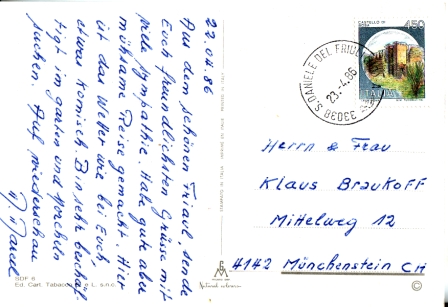 22.04.86
Aus dem schönen Friaul, sende
Euch freundlichsten Grüsse mit
viele Sympathie. Habe gute aber
mühsame Reise gemacht. Hier
ist das Wetter wie bei Euch,
etwas komisch. Bin sehr beschäf-
tigt im garten und
suchen. Auf wiederschau
SDF 6
Ed. Cart. Tabacc
CASTELLO DI
450
ITALIA
33038 S. DANIELE DEL FRIULI
23.4.86
Herrn & Frau
Klaus Braukoff
Mittelweg 12
4142 Münchenstein CH